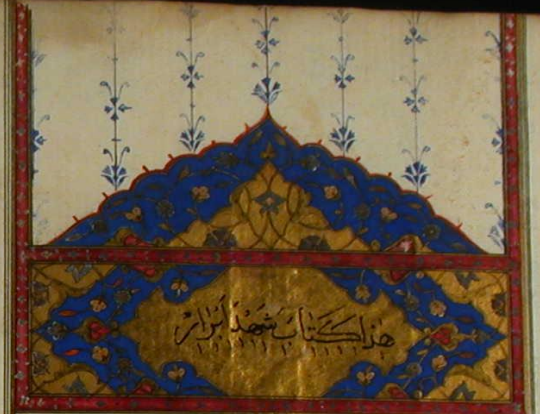 هذا كتاب شهد ابرار